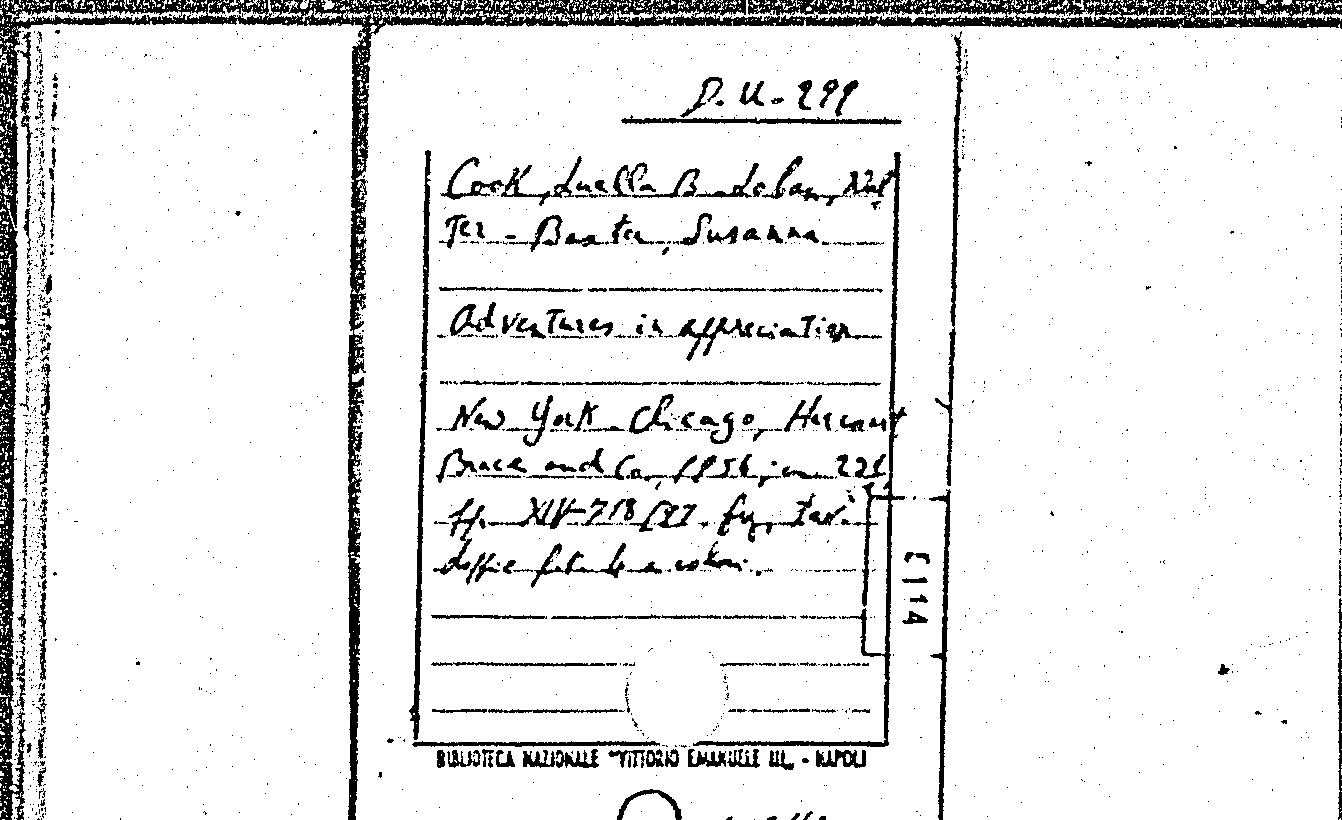 D. U. - 299
Cook, Luella B. - Loban, Wal
Ter - Baxter, Susanna
Adventures in appreciation
New York - Chicago, Harcourt
Brace and Co., in
pp. XIV-718 fig., tav.
doppie a colori.
[114
BIBLIOTECA NAZIONALE "VITTORIO EMANUELE III„ - NAPOLI